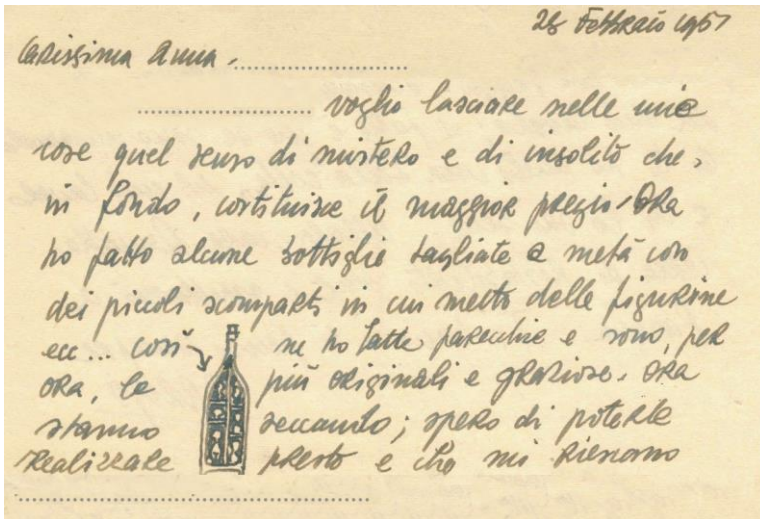 28 Febbraio 1951
Carissima Anna, ...................
................... voglio lasciare nelle mie
cose quel senso di mistero e di insolito che,
in fondo, costituisce il maggior pregio. Ora
ho fatto alcune bottiglie tagliate a metà con
dei piccoli scomparti in cui metto delle figurine
ecc... così ne ho fatte parecchie e sono, per
ora, le più originali e graziose. Ora
stanno seccando; spero di poterle
realizzare presto e che mi riescano
...................